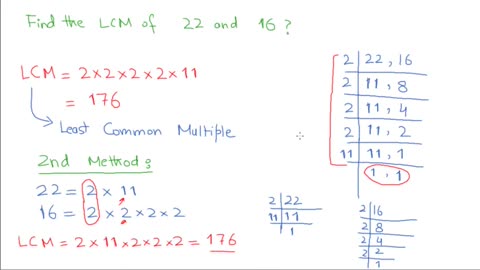 Find the LCM of 22 and 16 ?
LCM = 2×2×2×2×11
= 176
Least Common Multiple
2nd Method:
22 = 2 × 11
16 = 2 × 2 × 2 × 2
LCM = 2 × 11 × 2 × 2 × 2 = 176
2 | 22 , 16
2 | 11 , 8
2 | 11 , 4
2 | 11 , 2
11 | 11 , 1
1 , 1
2 | 22
11 | 11
1
2 | 16
2 | 8
2 | 4
2 | 2
1